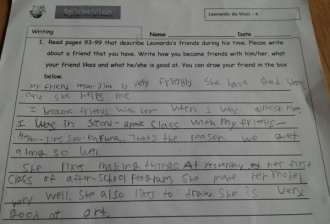 Leonardo da Vinci - 4
Writing Name Date
1. Read pages 93-99 that describe Leonardo's friends during his time. Please write
about a friend that you have. Write how you became friends with him/her, what
your friend likes and what he/she is good at. You can draw your friend in the box
below.
My friend is very friendly. She have good
and she helps me
I became friends with her when I was
I was in Second-grade class with my friends-
That's the reason we get
along so well.
She like making things. At yesterday her first
class of after-school program, she made
very well. She also likes to draw. She is very
good at art.